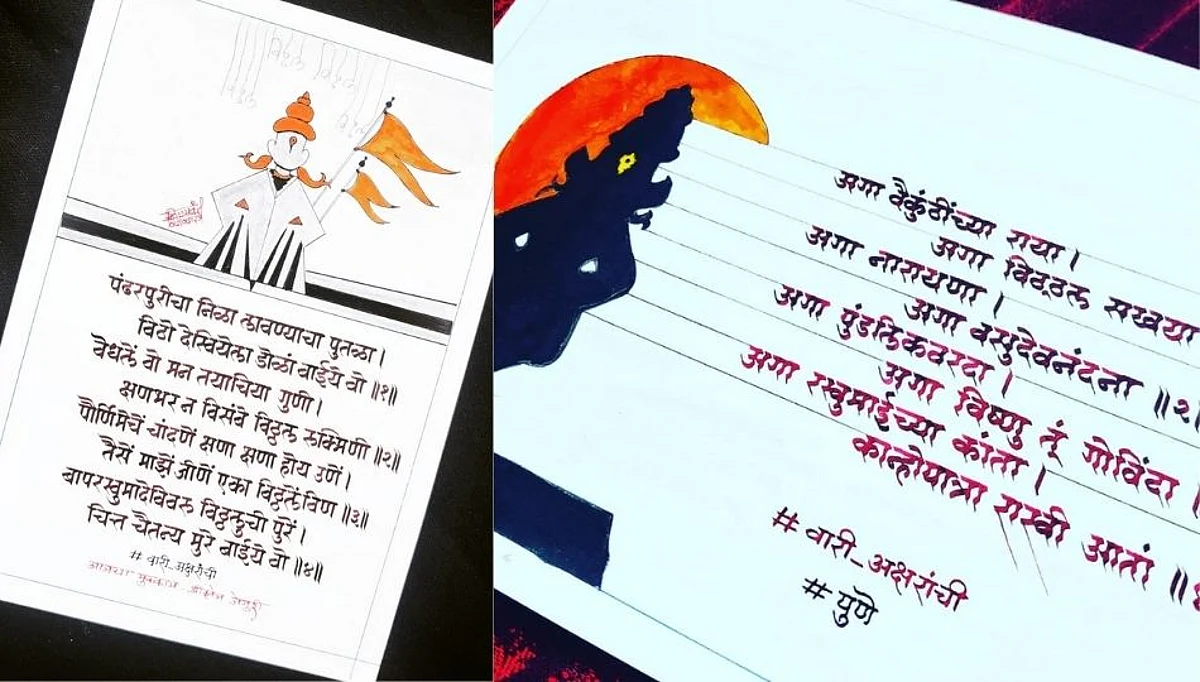 विठ्ठल
विठ्ठल
विठ्ठल
विठ्ठल
पंढरपुरीचा निळा लावण्याचा पुतळा।
विठो देखियेला डोळां बाईये वो ॥१॥
वेधलें वो मन तयाचिया गुणी।
क्षणभर न विसंबे विठ्ठल रुक्मिणी ॥२॥
पौर्णिमेचें चांदणें क्षणा क्षणा होय उणें।
तैसें माझें जीणें एका विठ्ठलेंविण ॥३॥
बापरखुमादेविवरू विठ्ठलुची पुरें।
चित्त चैतन्य मुरे बाईये वो ॥४॥
# वारी_अक्षरांची
आजचा मुक्काम श्रीक्षेत्र जेजुरी
अगा वैकुंठींच्या राया।
अगा विठ्ठल सखया
अगा नारायणा।
अगा वसुदेवनंदना ॥२॥
अगा पुंडलिकवरदा।
अगा विष्णु तूं गोविंदा।
अगा रखुमाईच्या कांता।
कान्होपात्रा राखी आतां ॥
# वारी_अक्षरांची
# पुणे